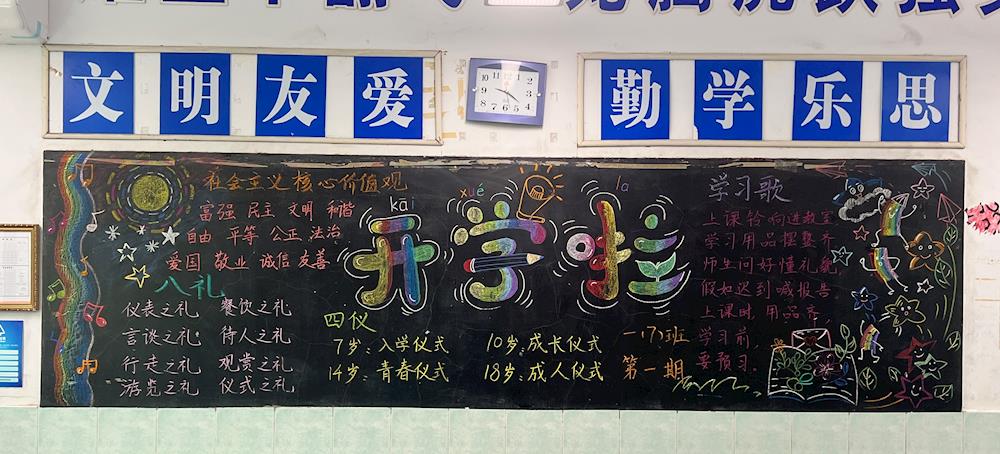 文明友爱
勤学乐思
社会主义核心价值观
富强 民主 文明 和谐
自由 平等 公正 法治
爱国 敬业 诚信 友善
八礼
仪表之礼 餐饮之礼
言谈之礼 待人之礼
行走之礼 观赏之礼
游览之礼 仪式之礼
kāi xué la
开学啦
四仪
7岁:入学仪式 10岁:成长仪式
14岁:青春仪式 18岁:成人仪式
一(7)班
第一期
学习歌
上课铃响进教室
学习用品摆整齐
师生问好懂礼貌
假如迟到喊报告
上课时,用品齐,
学习前,
要预习.